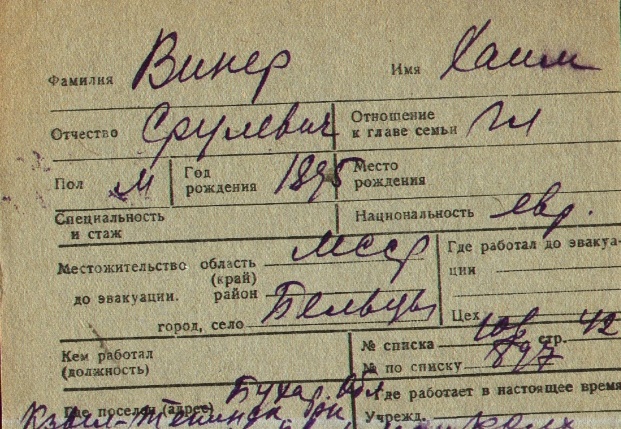 Фамилия Винер Имя Хаим
Отчество Срулевич Отношение к главе семьи гл
Пол м Год рождения 1895 Место рождения
Специальность и стаж Национальность евр.
Местожительство область МССР Где работал до эвакуа-
(край) ции
до эвакуации. район Бельцы
город, село Цех
Кем работал № списка 108 стр. 42
(должность) № по списку 897
Где поселен (адрес) Бухар. обл Где работает в настоящее время
Кзыл-Тепинск Учрежд.